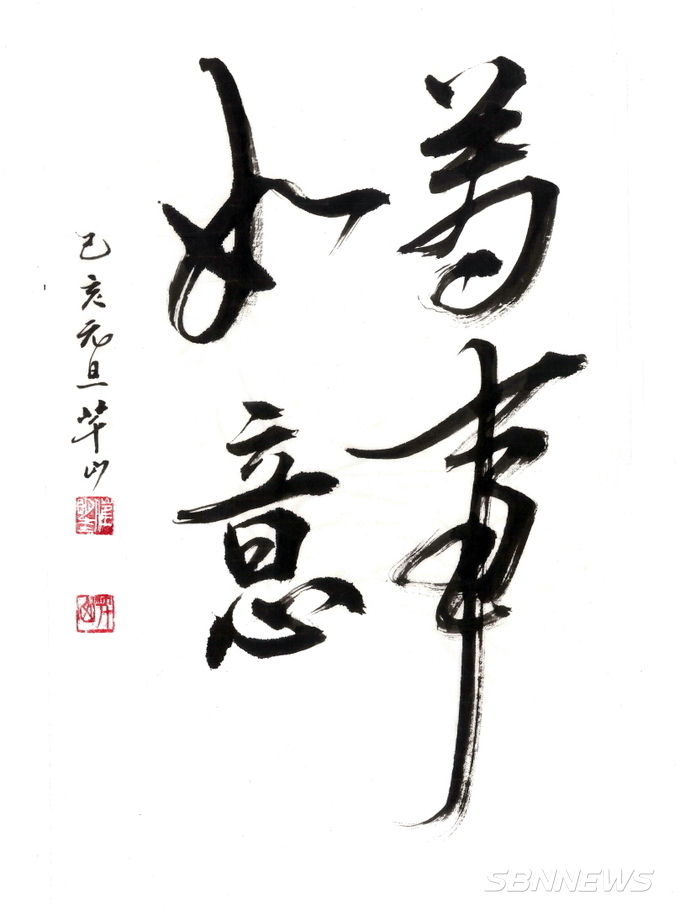 萬事
如意
己亥元旦 芊山
SBNNEWS